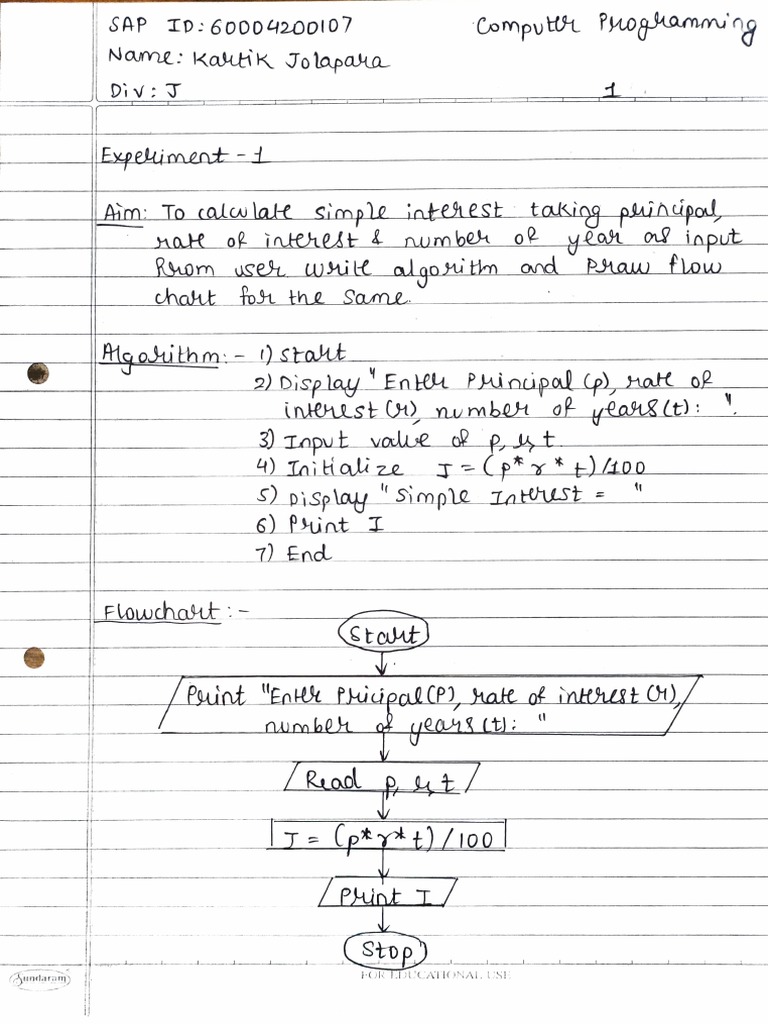 SAP ID: 60004200107
Computer Programming
Name: Kartik Jolapara
Div: J
1
Experiment - 1
Aim: To calculate simple interest taking principal,
rate of interest & number of year as input
Rrom user write algorithm and Draw flow
chart for the same.
Algorithm:- 1) Start
2) Display "Enter Principal (p), rate of
interest (r), number of years (t): ".
3) Input value of p, r, t.
4) Initialize I = (p* r * t)/100
5) Display "Simple Interest = "
6) Print I
7) End
Flowchart:-
Start
Print "Enter Pricipal (P), rate of interest (r),
number of years (t): "
Read p, r, t
I = (p*r*t)/100
Print I
Stop
Sundaram
FOR EDUCATIONAL USE